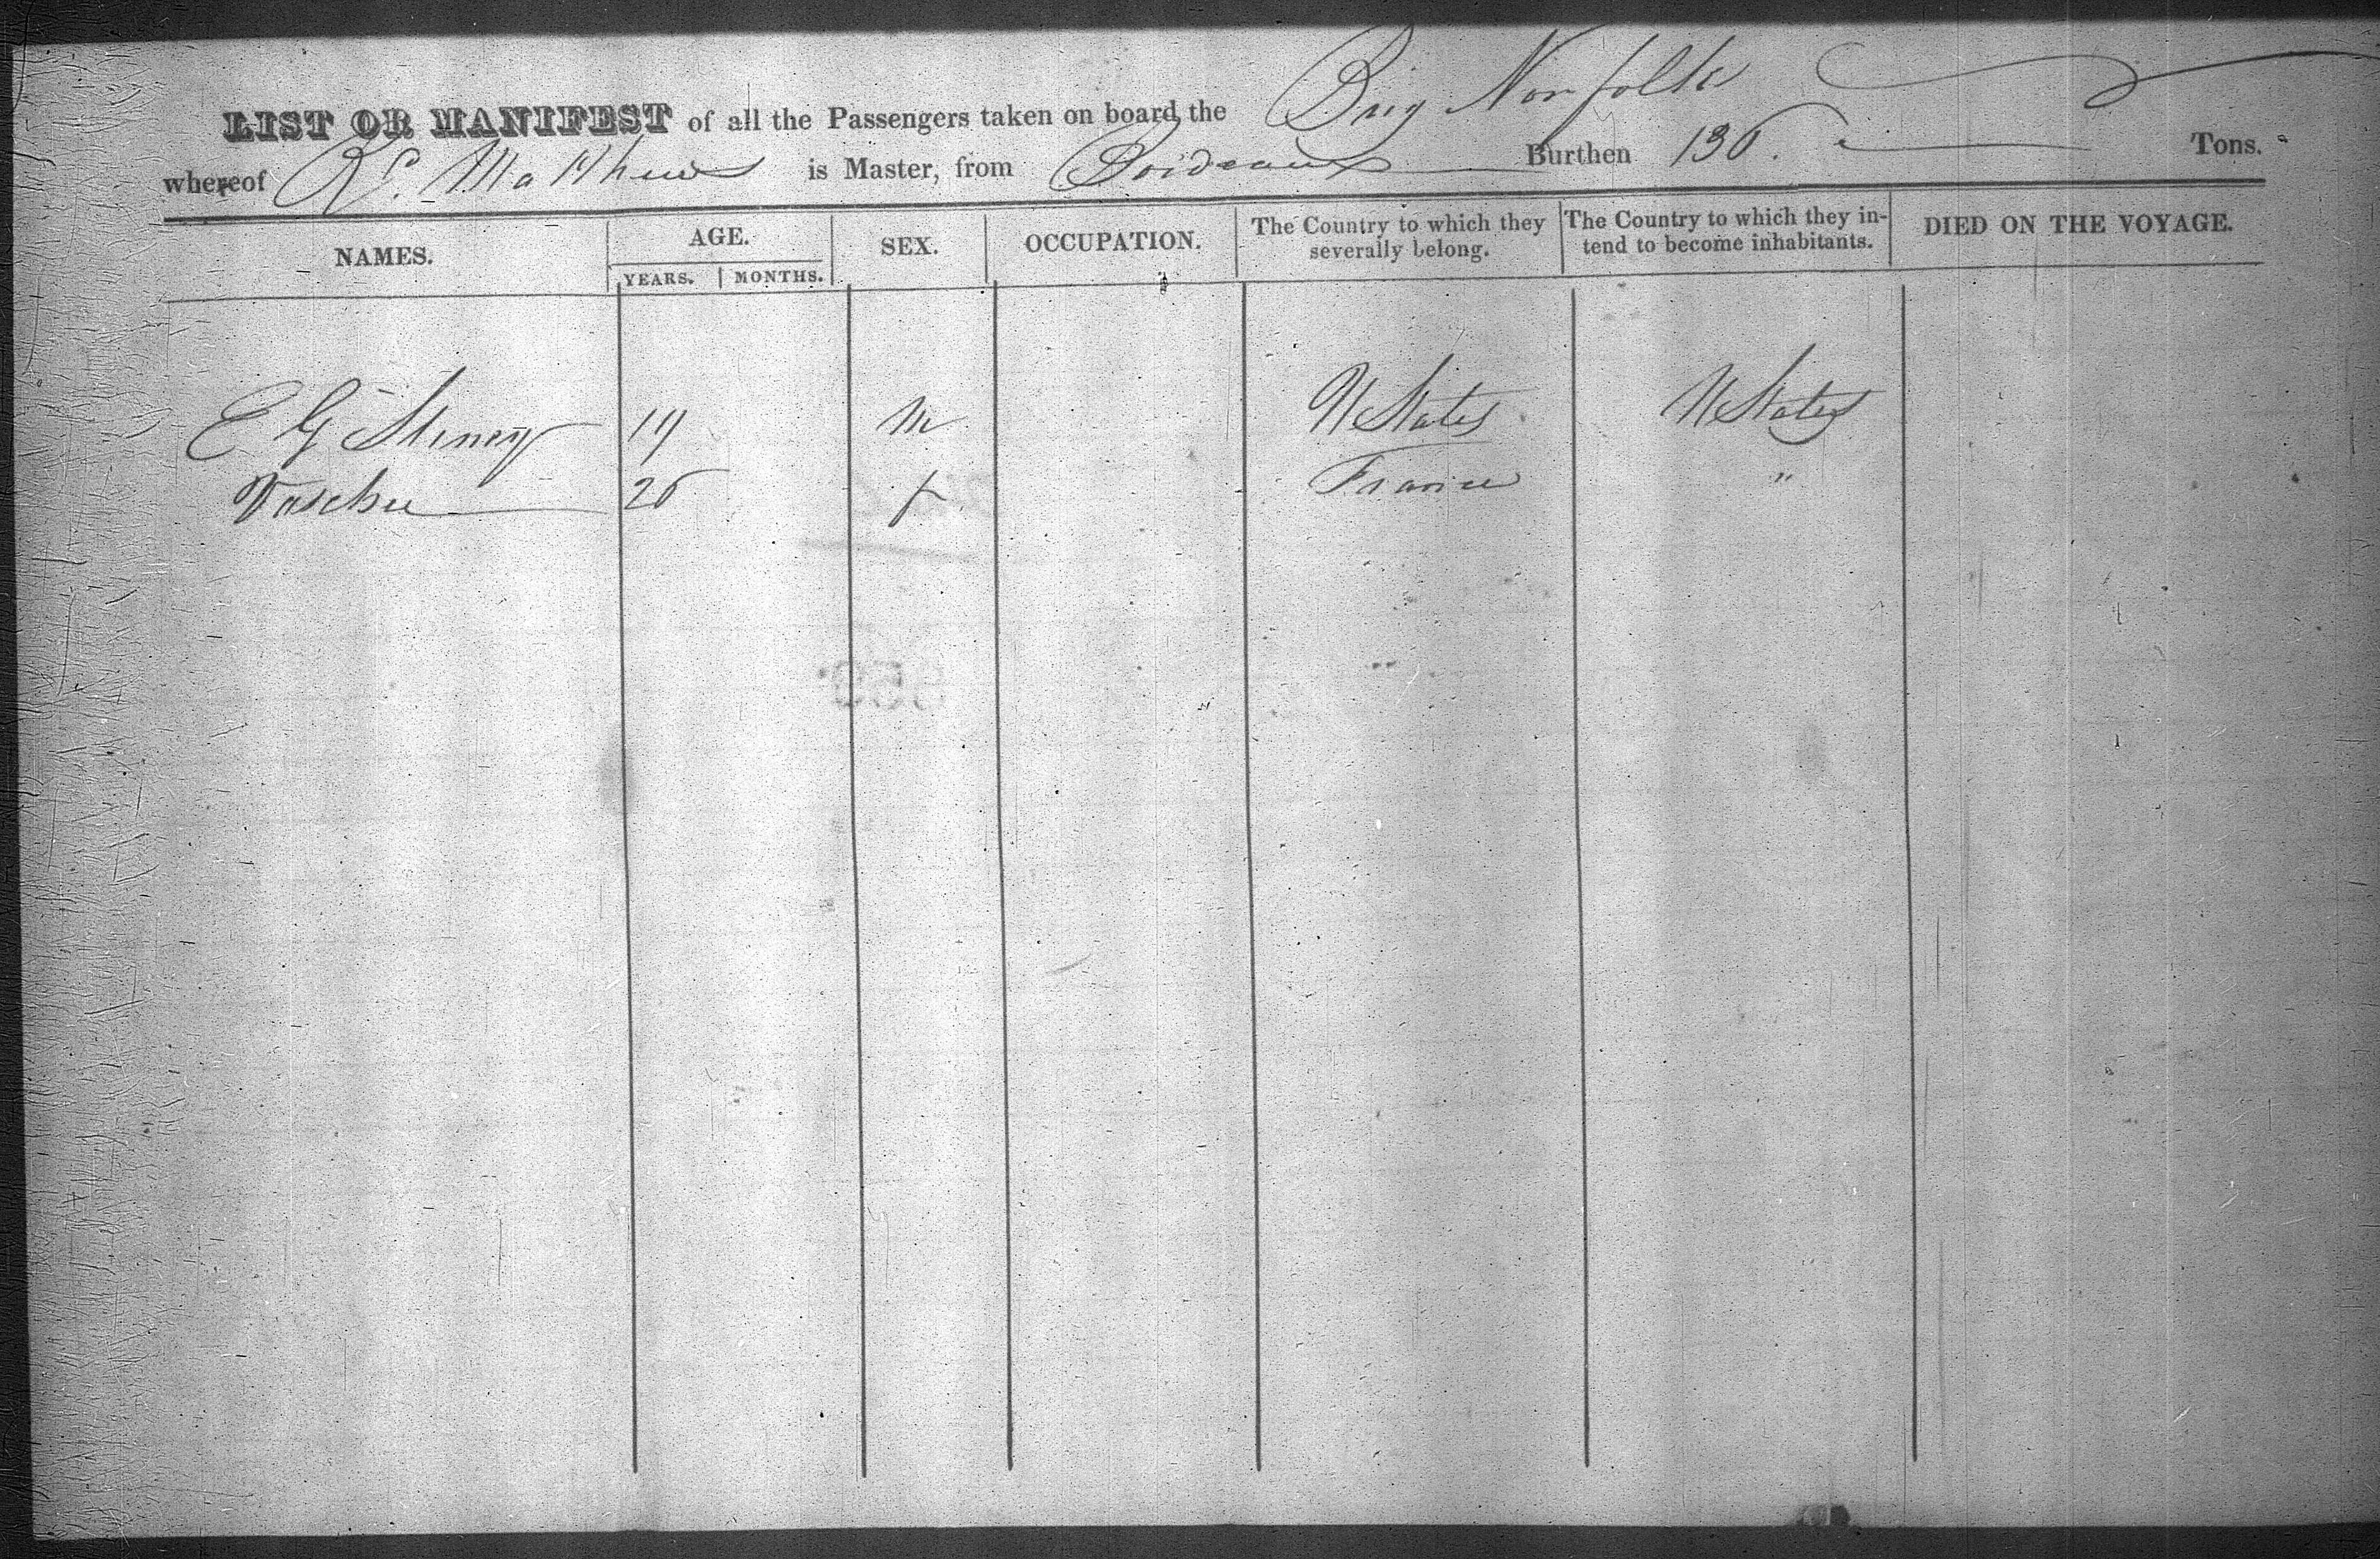 LIST OR MANIFEST of all the Passengers taken on board the Brig Norfolk
whereof Matthews is Master, from Bordeaux Burthen 136. Tons.
NAMES. AGE. YEARS. MONTHS. SEX. OCCUPATION. The Country to which they severally belong. The Country to which they intend to become inhabitants. DIED ON THE VOYAGE.
E G M U States U States
26 f France "